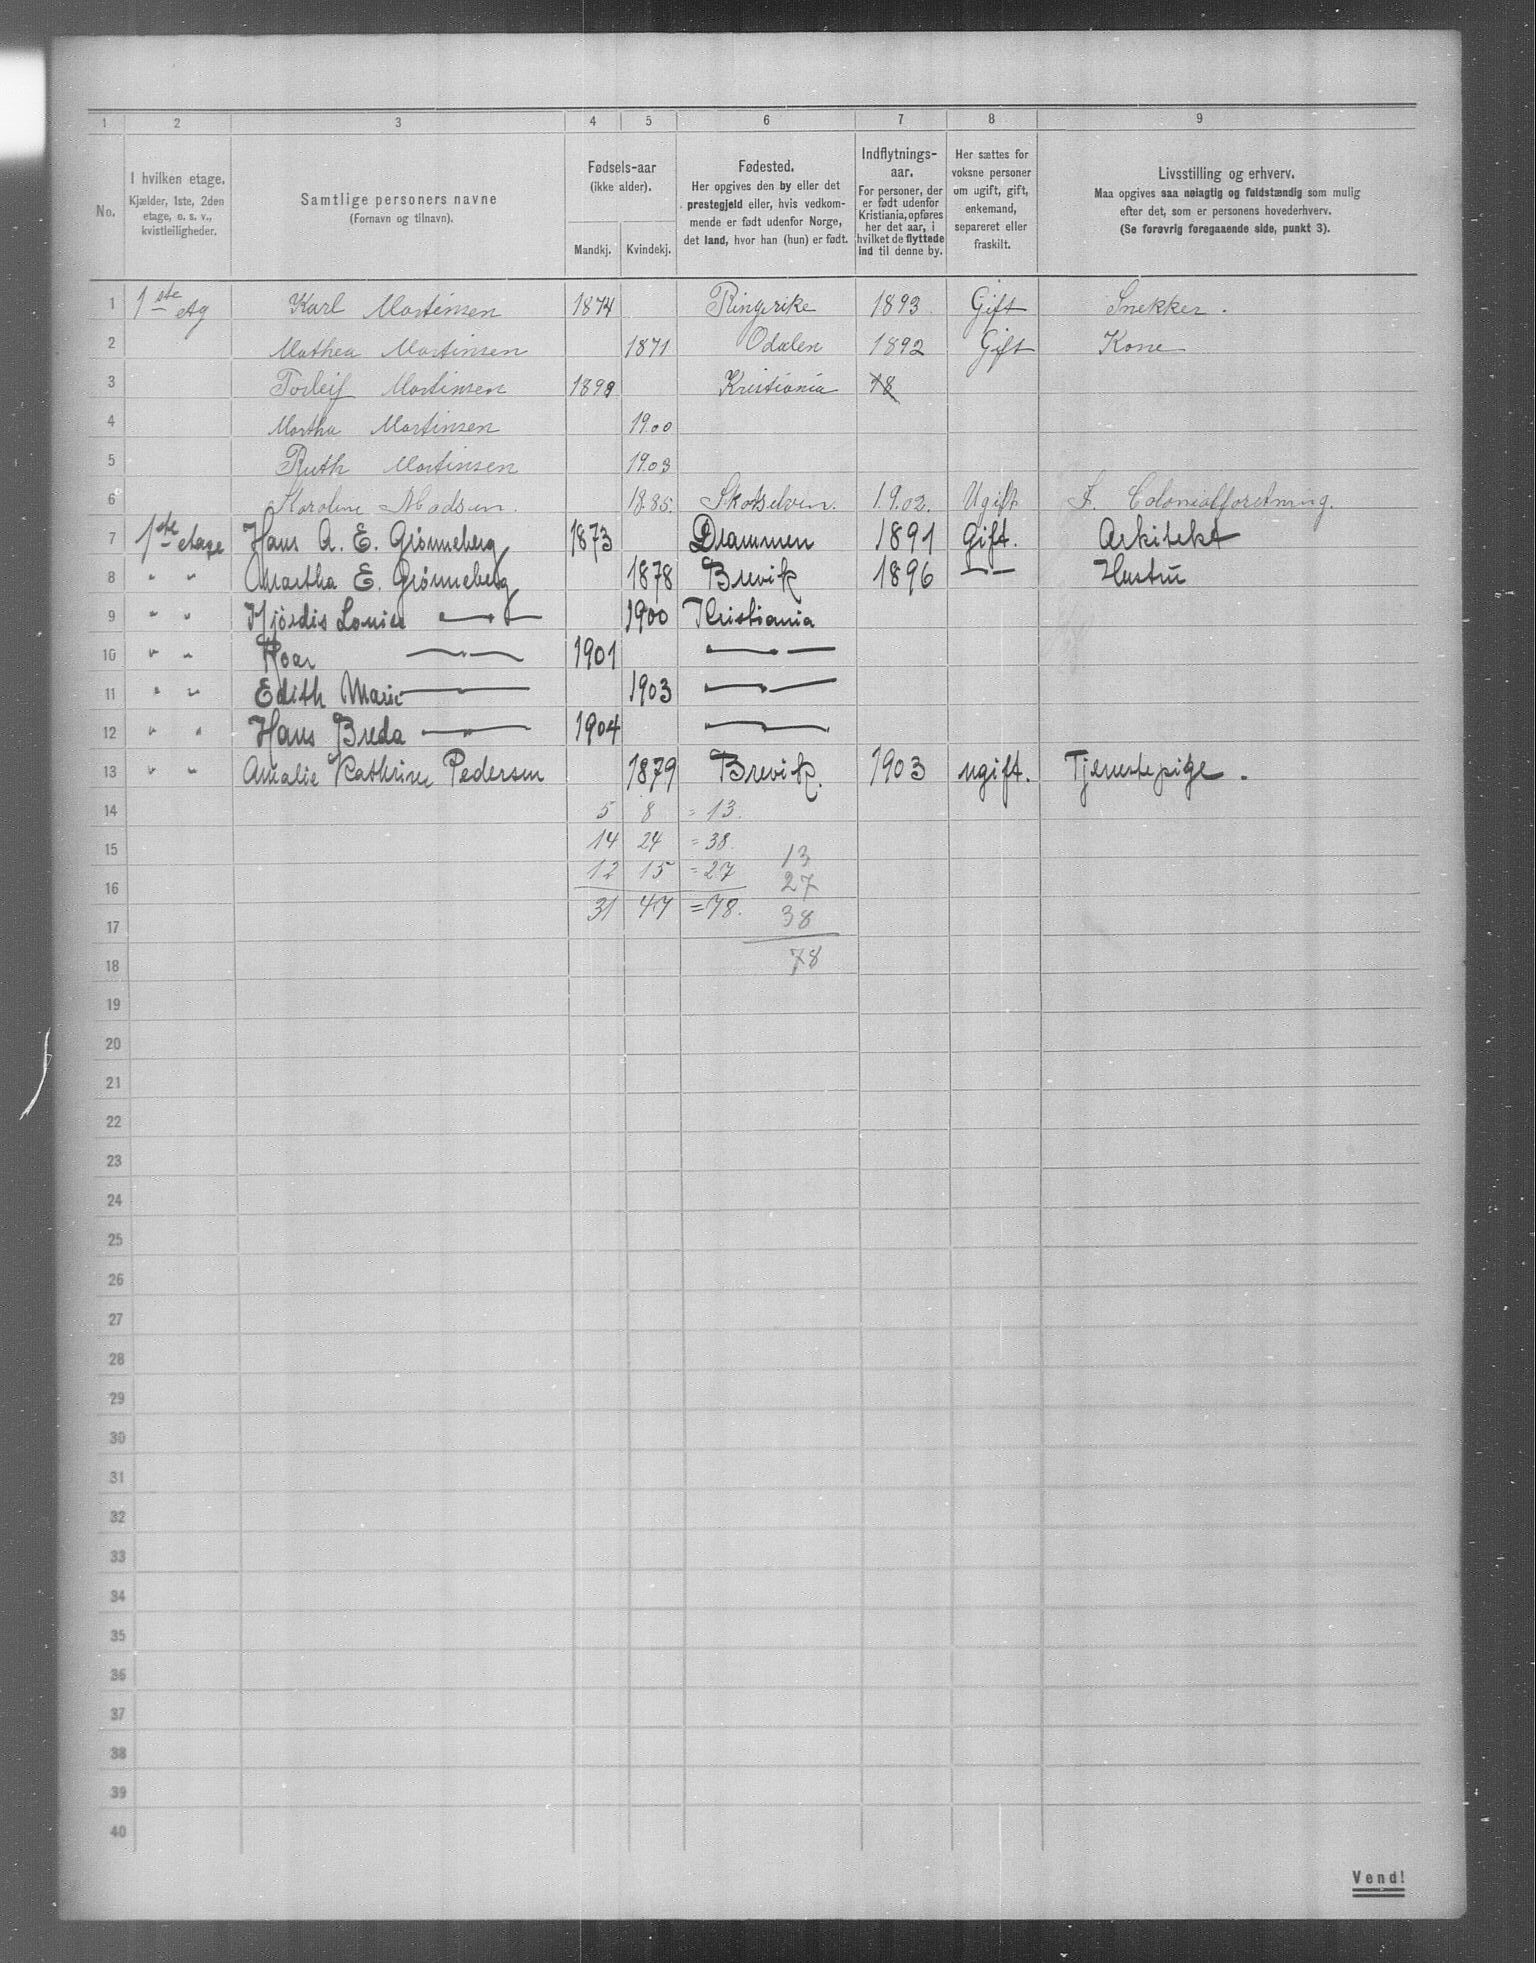 1 2 3 4 5 6 7 8 9
No.
I hvilken etage.
Kjælder, 1ste, 2den
etage, o. s. v.,
kvistleiligheder.
Samtlige personers navne
(Fornavn og tilnavn).
Fødsels-aar
(ikke alder).
Mandkj. Kvindekj.
Fødested.
Her opgives den by eller det
prestegjeld eller, hvis vedkom-
mende er født udenfor Norge,
det land, hvor han (hun) er født.
Indflytnings-
aar.
For personer, der
er født udenfor
Kristiania, opføres
her det aar, i
hvilket de flyttede
ind til denne by.
Her sættes for
voksne personer
om ugift, gift,
enkemand,
separeret eller
fraskilt.
Livsstilling og erhverv.
Maa opgives saa nøiagtig og fuldstændig som mulig
efter det, som er personens hovederhverv.
(Se forøvrig foregaaende side, punkt 3).
1 1ste etg Karl Martinsen 1874 Ringerike 1893 Gift Snekker.
2 Mathea Martinsen 1871 Odalen 1892 Gift Kone
3 Torleif Martinsen 1898 Kristiania 18
4 Martha Martinsen 19.00
5 Ruth Martinsen 19.03
6 Karoline Madsen. 18.85. Skotselven. 1.9.02. Ugift F. Colonialforetning.
7 1ste etage Hans A. E. Grønneberg 1873 Drammen 1891 Gift. Arkitekt
8 " " Martha E. Grønneberg 1878 Brevik 1896 — — Hustru
9 " " Hjördis Louise — 1900 Kristiania
10 " " Roar — 1901 —
11 " " Edith Marie — 1903 —
12 " " Hans Breda — 1904 —
13 " " Amalie Kathrine Pedersen 1879 Brevik. 1903 ugift. Tjenestepige.
14 5 8 = 13.
15 14 24 = 38. 13
16 12 15 = 27 27
17 31 47 = 78. 38
18 78
19
20
21
22
23
24
25
26
27
28
29
30
31
32
33
34
35
36
37
38
39
40
Vend!